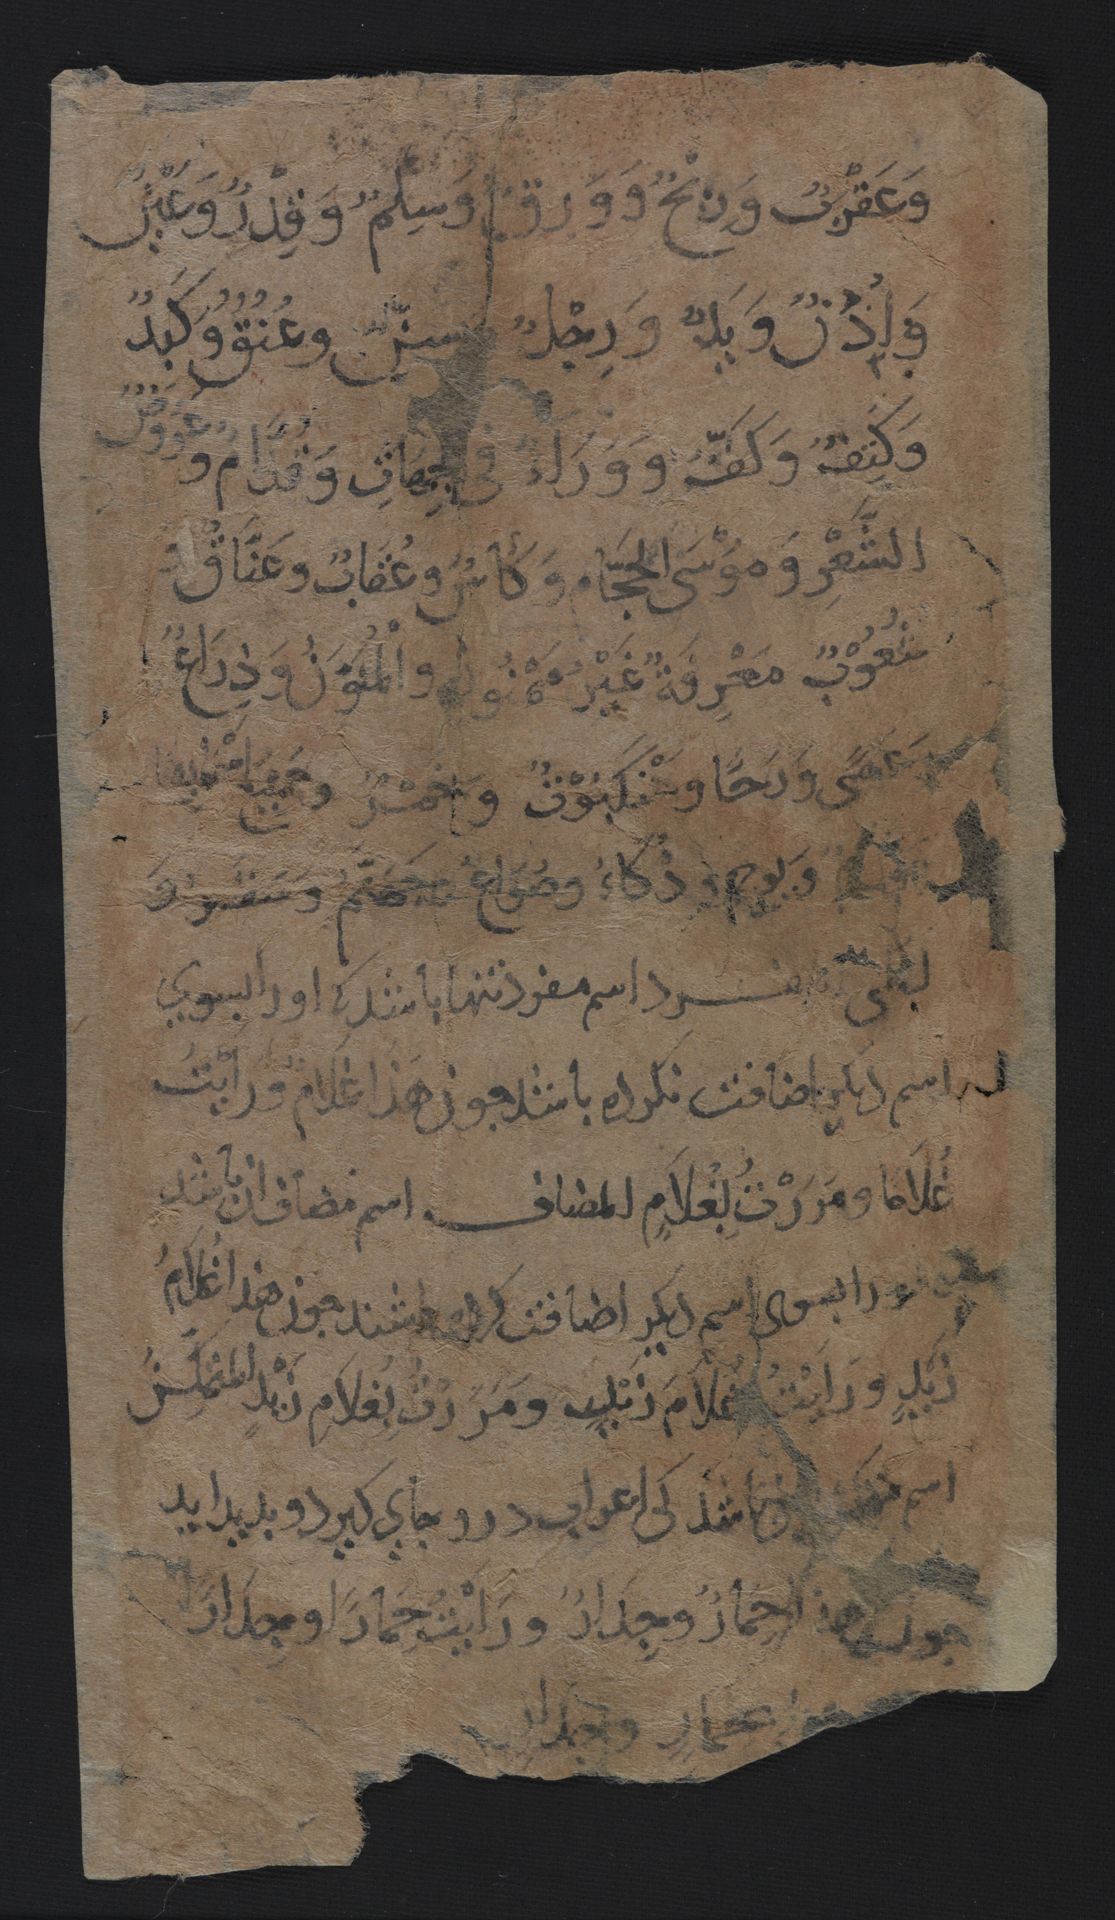 وَعَقْرَبٌ وَرِيْحٌ وَوَرِقٌ وَسِلْمٌ وَقِدْرٌ وَعَيْنٌ
وَاُذُنٌ وَيَدٌ وَرِجْلٌ وسِنٌّ وعُنُقٌ وَكَبِدٌ
وَكَتِفٌ وَكَفٌّ وَوَرَاءٌ فى الجِهَاتِ وَقُدَّامٌ وَعَرُوضُ
الشَّعْرِ وَمُوْسَى الحَجَّامِ وَكَأسٌ وعُقَابٌ وعَنَاقٌ
شَعُوْبٌ مَعْرِفَةٌ غَيْرُ وَالْمَنُوْنُ وَذِرَاعٌ
وَعَصًى وَرَحًا وعَنْكَبُوْتٌ وَخَمْرٌ وجَمِيْعُ
وَيَوم وذُكَاءُ وصُوَاعٌ وجَهَنَّمُ وسَقَرُ وَ
لَظَى اسم مفرد تنها باشد كه اورا بسوي
اسم ديكر اضافت نكرده باشند جون هَذَا غُلَامٌ وَرَايْتُ
غُلَامًا ومَرَرْتُ بِغُلَامٍ المضاف اسم مضاف ان باشد
اورا بسوى اسم ديكر اضافت كرده باشند جون هَذا غُلَامُ
زَيْدٍ ورَايْتُ غُلَامَ زَيْدٍ ومَرَرْتُ بِغُلَامِ زَيْدٍ المتمكِّنُ
اسم متمكن ان باشد كى اعراب درو جاي كيرد وبديد ايد
جون هذا حِمَارٌ وجِدَارٌ ورَايْتُ حِمَارًا وجِدَارًا
بحمارٍ وجدارٍ